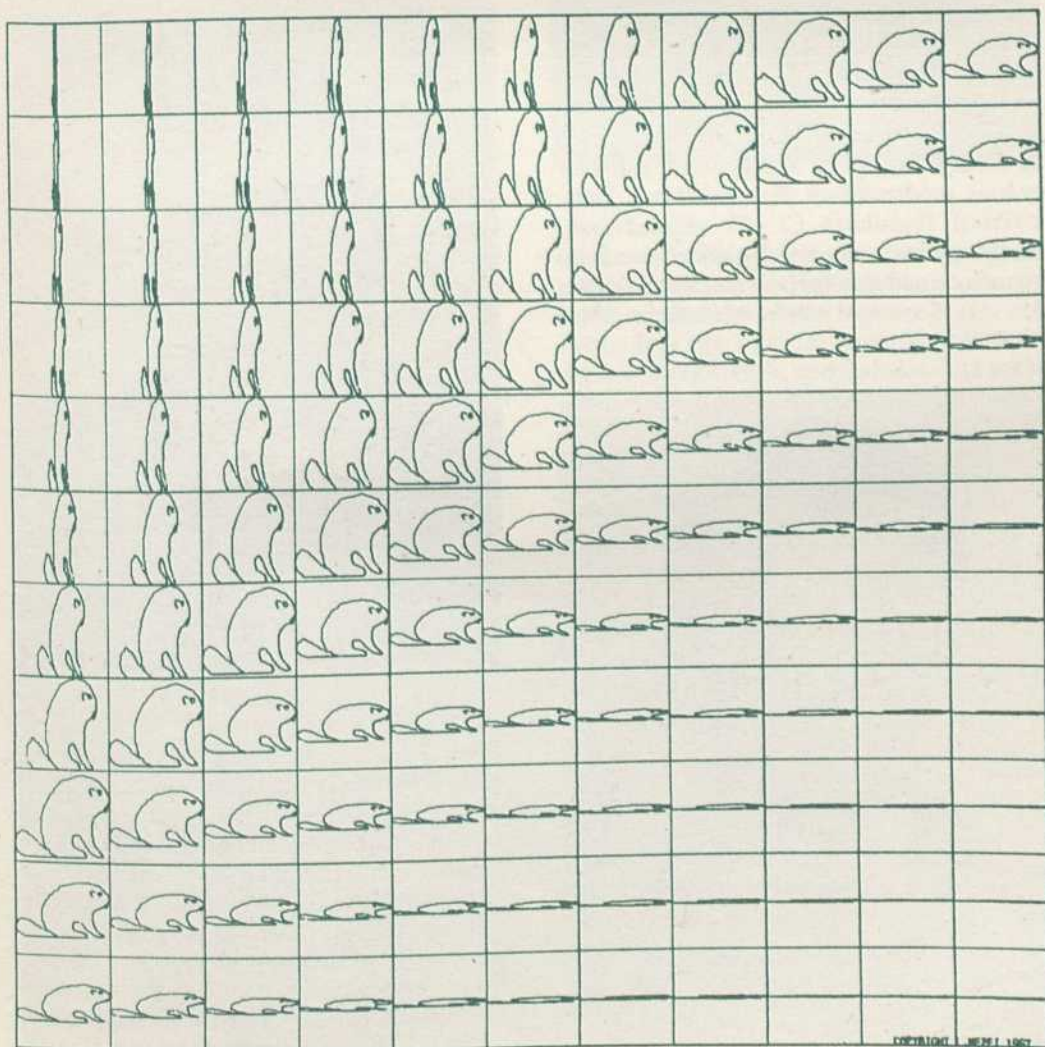 COPYRIGHT MEZEI 1967